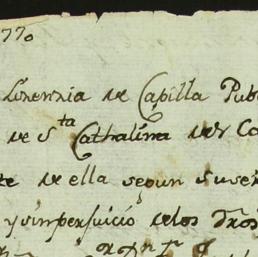 770
Lizenzia de Capilla Pub
de S.ta Cathalina del Co
te de ella segun su ser
y sin perjuicio de los Dros